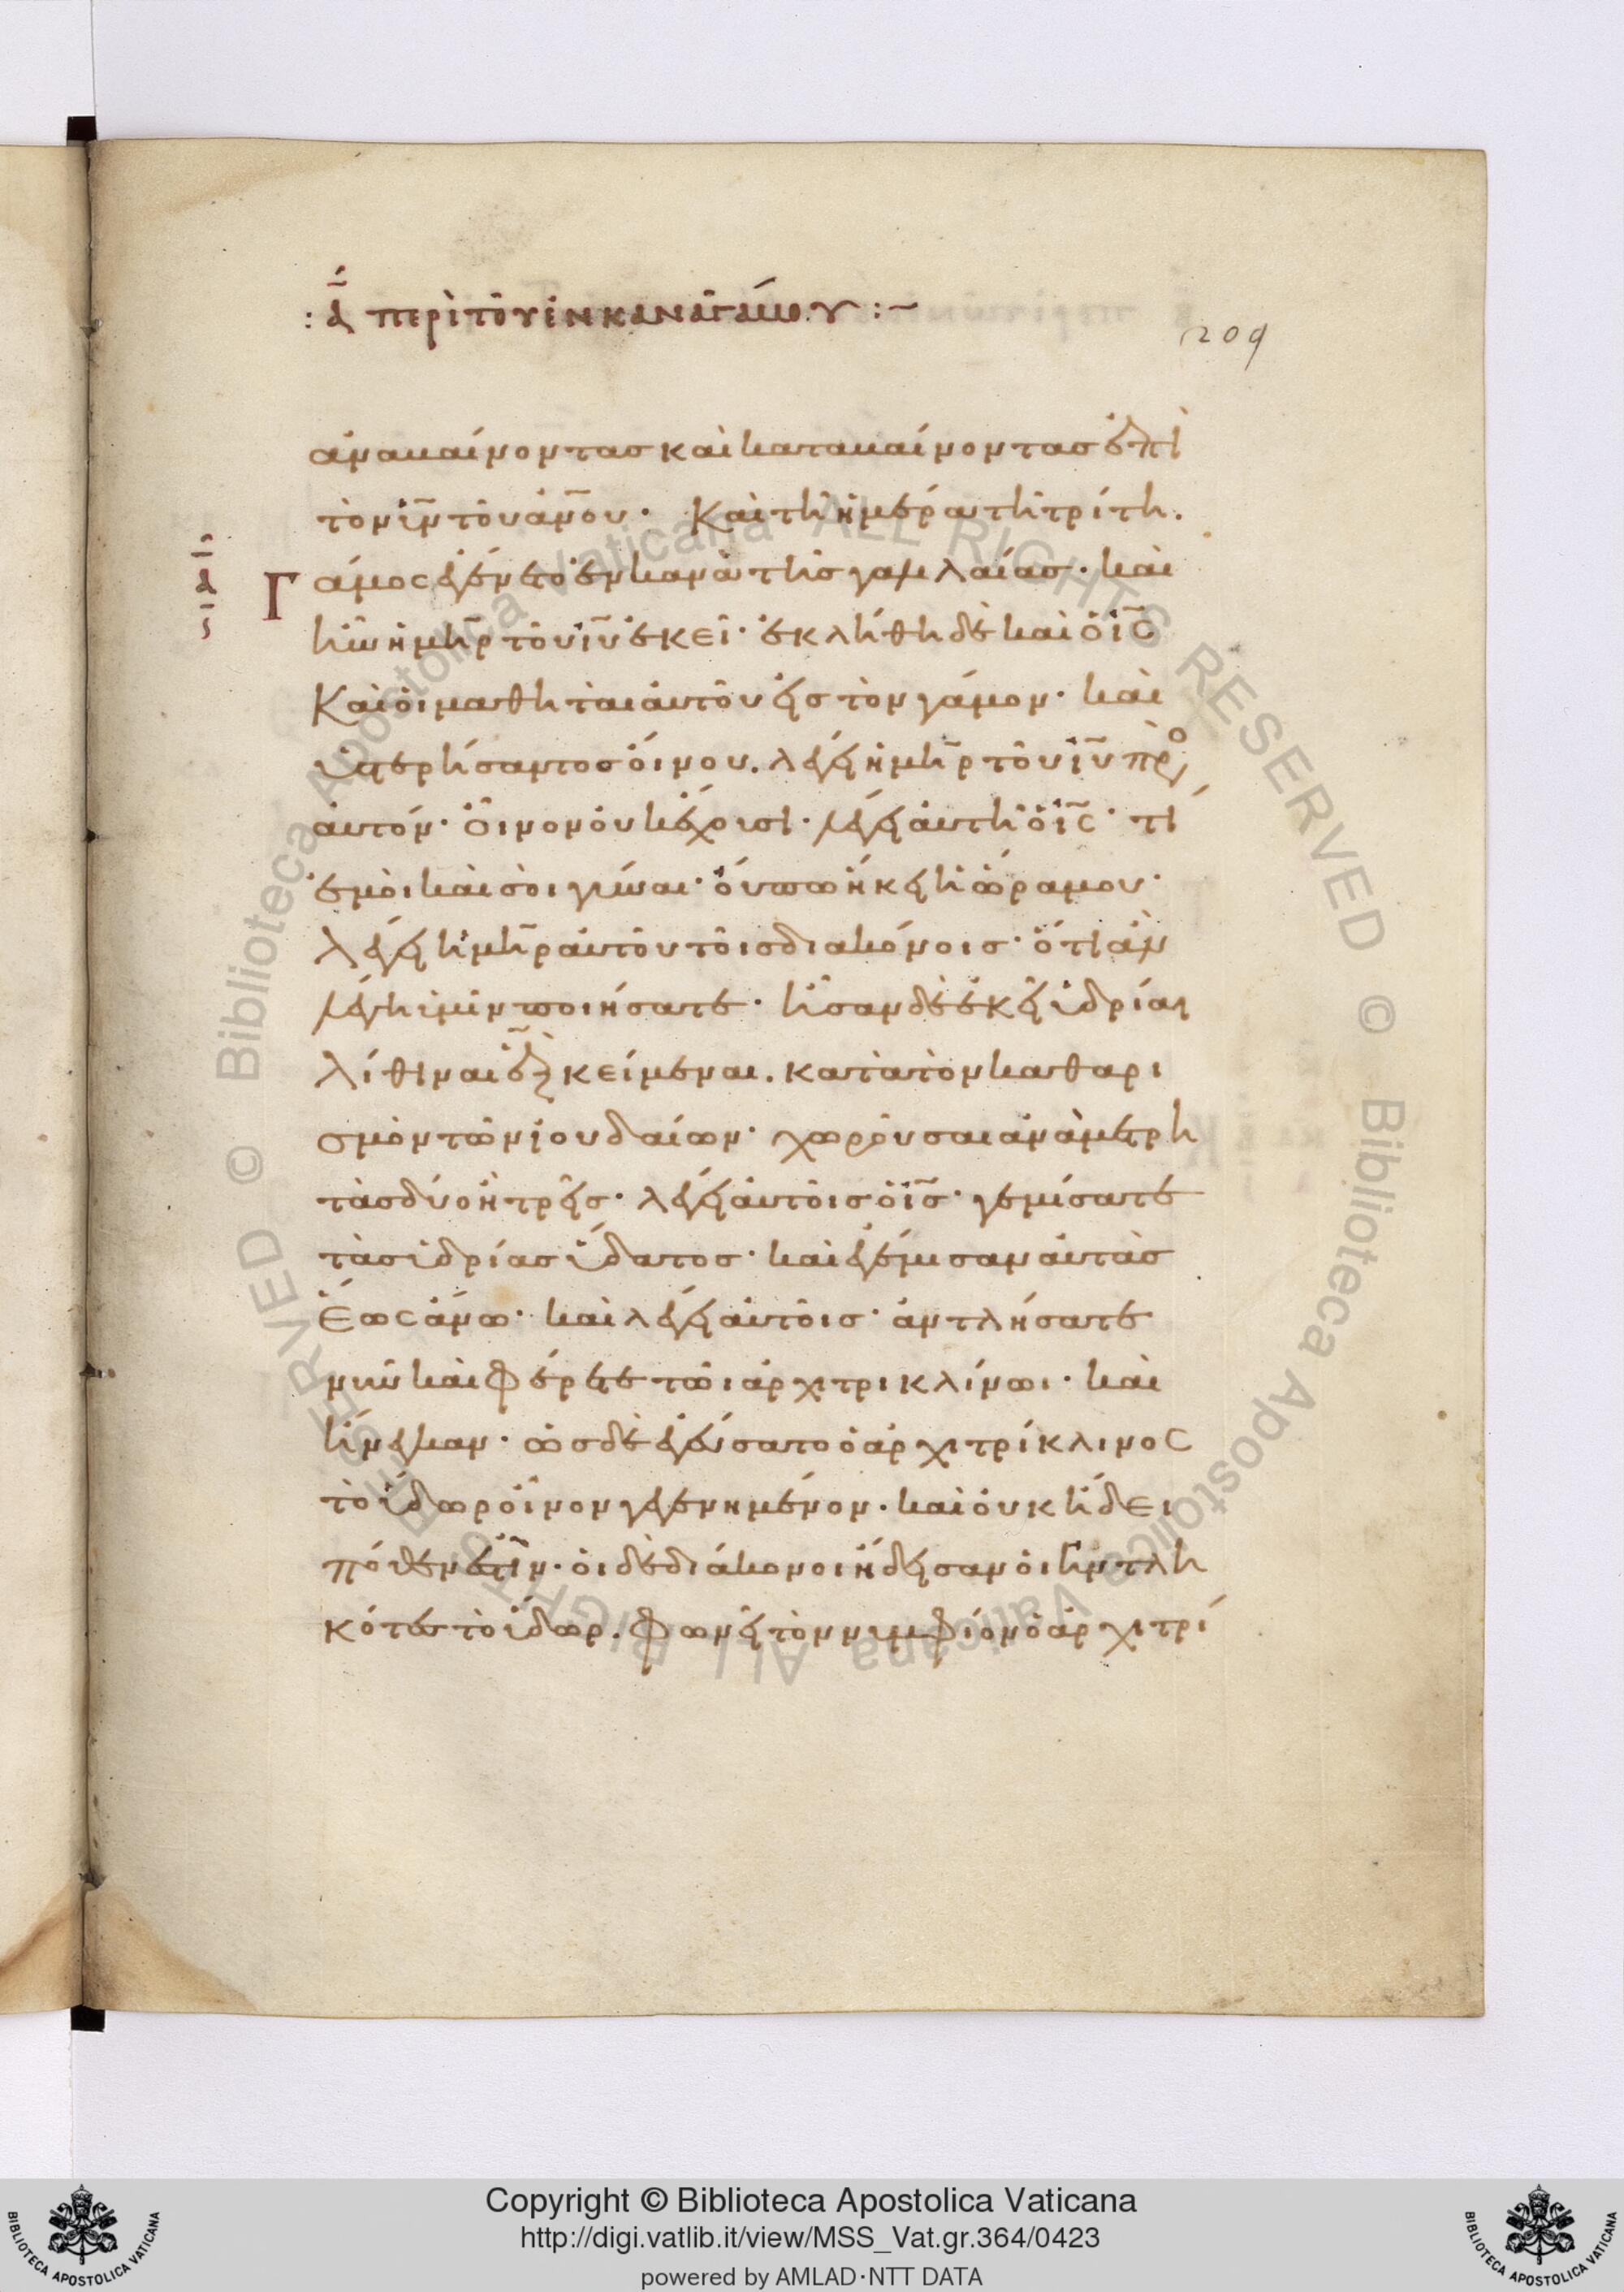 :α̅ περὶ τοῦ ἐν κανᾶ γάμου :~
209
ἀναβαίνοντας καὶ καταβαίνοντας ἐπὶ
τὸν υ̅ν̅ τοῦ α̅ν̅ο̅υ̅· Καὶ τῆ ἡμέρα τῆ τρίτη.
α̅
Γάμος ἐγένετο ἐν κανᾶ τῆς γαλιλαίας· καὶ
ἦν ἡ μ̅η̅ρ̅ τοῦ ι̅υ̅ ἐκεῖ· ἐκλήθη δὲ καὶ ὁ ι̅ς̅
Καὶ οἱ μαθηταὶ αὐτοῦ εἰς τὸν γάμον· καὶ
ὑστερήσαντος οἴνου. λέγει ἡ μ̅η̅ρ̅ τοῦ ι̅υ̅ πρὸ
αὐτόν· οἶνον οὐκ ἔχουσι· λέγει αὐτῆ ὁ ι̅ς̅· τί
ἐμοὶ καὶ σοὶ γύναι· οὔπω ἥκει ἡ ὥρα μου·
λέγει ἡ μ̅η̅ρ̅ αὐτοῦ τοῖς διακόνοις· ὅτι ἂν
λέγη ὑμῖν ποιήσατε· ἦσαν δὲ ἐκεῖ ὑδρίαι
λίθιναι ἓξ κείμεναι. κατὰ τὸν καθαρι
σμὸν τῶν ἰουδαίων· χωροῦσαι ἀνὰ μετρη
τὰς δύο ἢ τρεῖς· λέγει αὐτοῖς ὁ ι̅ς̅· γεμίσατε
τὰς ὑδρίας ὕδατος· καὶ ἐγέμισαν αὐτὰς
ἕως ἄνω· καὶ λέγει αὐτοῖς· ἀντλήσατε
νῦν καὶ φέρετε τῶι ἀρχιτρικλίνωι· καὶ
ἤνεγκαν· ὡς δὲ ἐγεύσατο ὁ ἀρχιτρίκλινος
τὸ ὕδωρ οἶνον γεγενημένον· καὶ οὐκ ἤδει
πόθεν ἐστὶν· οἱ δὲ διάκονοι ἤδεισαν οἱ ἠντλη
κότες τὸ ὕδωρ. φωνεῖ τὸν νυμφίον ὁ ἀρχιτρί
Copyright © Biblioteca Apostolica Vaticana
http://digi.vatlib.it/view/MSS_Vat.gr.364/0423
powered by AMLAD·NTT DATA
BIBLIOTECA APOSTOLICA VATICANA
BIBLIOTECA APOSTOLICA VATICANA
© Biblioteca Apostolica Vaticana ALL RIGHTS RESERVED
© Biblioteca Apostolica Vaticana ALL RIGHTS RESERVED